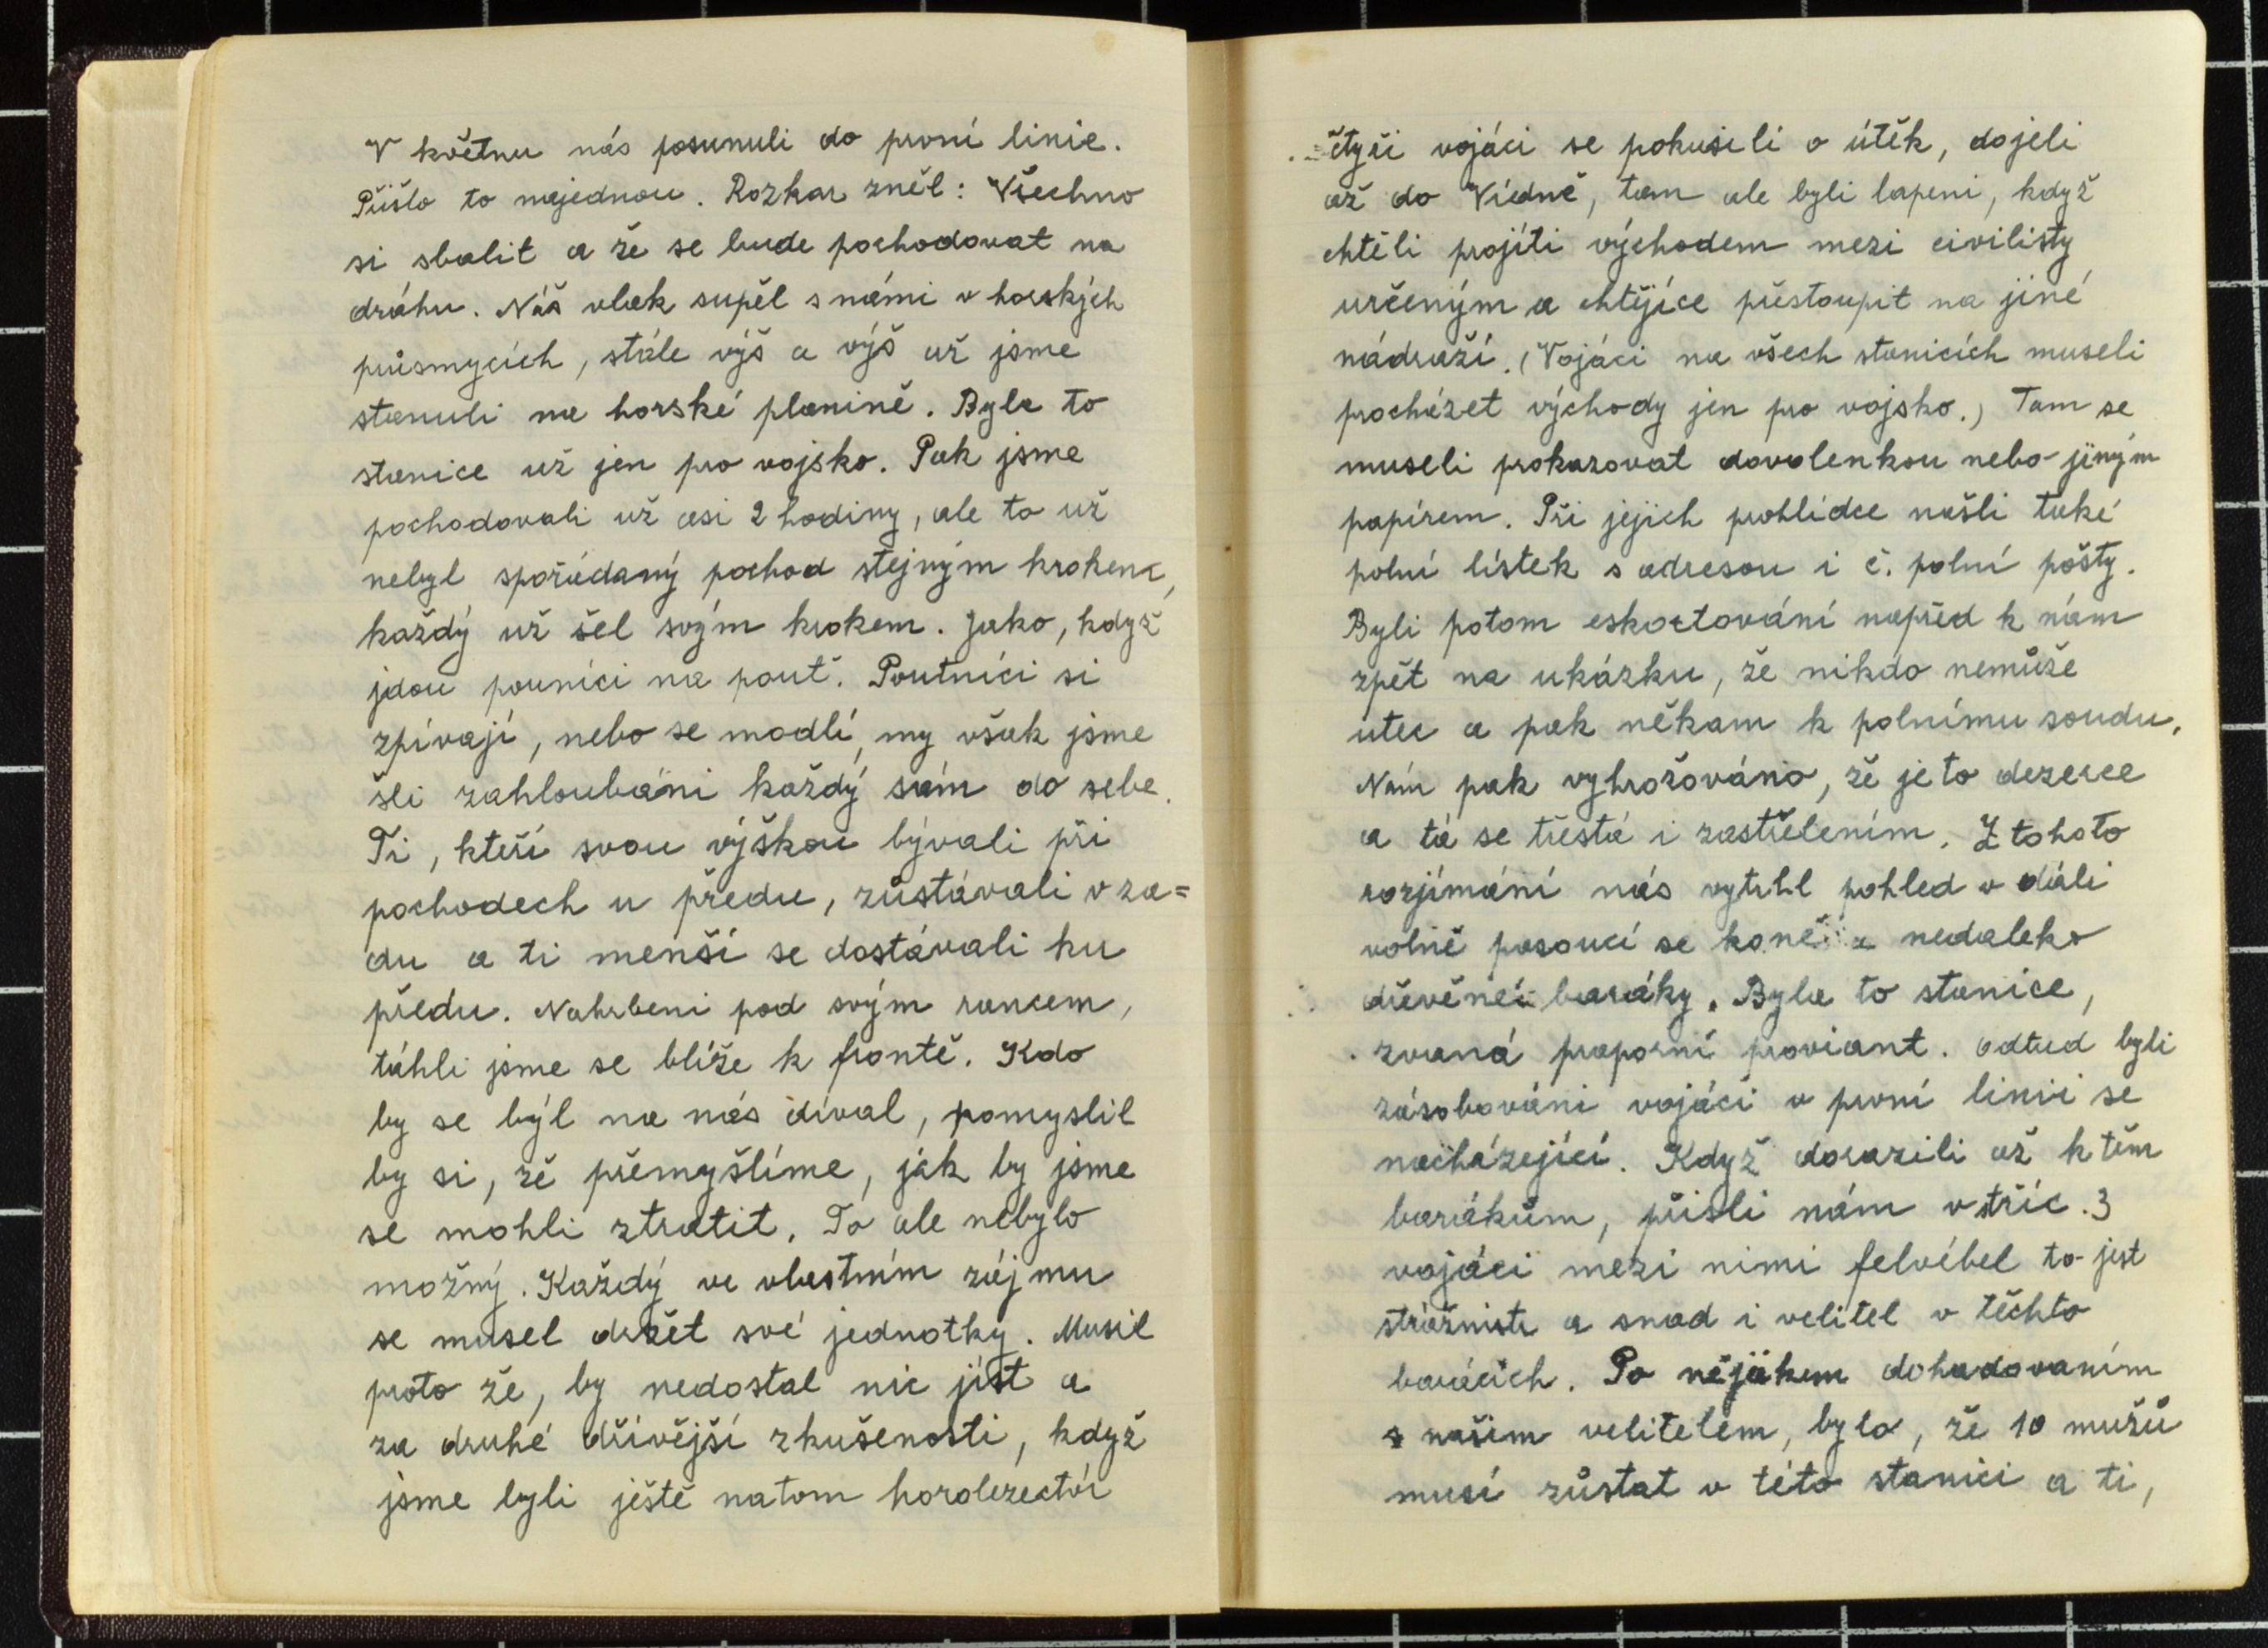 V květnu nás posunuli do první linie.
Přišlo to najednou. Rozkaz zněl: Všechno
si sbalit a že se bude pochodovat na
dráhu. Náš vlak supěl s námi v horských
průsmycích, stále výš a výš až jsme
stanuli na horské planině. Byla to
stanice už jen pro vojsko. Pak jsme
pochodovali už asi 2 hodiny, ale to už
nebyl spořádaný pochod stejným krokem,
každý už šel svým krokem. Jako, když
jdou pouníci na pouť. Poutníci si
zpívají, nebo se modlí, my však jsme
šli zahloubáni každý sám do sebe.
Ti, kteří svou výškou bývali při
pochodech u předu, zůstávali v za=
du a ti menší se dostávali ku
předu. Nahrbeni pod svým rancem,
táhli jsme se blíže k frontě. Kdo
by se býl na nás díval, pomyslil
by si, že přemyšlíme, jak by jsme
se mohli ztratit. To ale nebylo
možný. Každý ve vlastním zájmu
se musel držet své jednotky. Musil
proto že, by nedostal nic jíst a
za druhé dřívější zkušenosti, když
jsme byli ještě natom horolezectví
čtyři vojáci se pokusili o útěk, dojeli
až do Vídně, tam ale byli lapeni, když
chtěli projíti východem mezi civilisty
určeným a chtějíce přestoupit na jiné
nádraží. (Vojáci na všech stanicích museli
procházet východy jen pro vojsko.) Tam se
museli prokazovat dovolenkou nebo jiným
papírem. Při jejich prohlídce našli také
polní lístek s adresou i č. polní pošty.
Byli potom eskortování napřed k nám
zpět na ukázku, že nikdo nemůže
utec a pak někam k polnímu soudu.
Nám pak vyhrožováno, že je to dezerce
a tá se trestá i zastřelením. Z tohoto
rozjímání nás vytrhl pohled v dáli
volně pasoucí se koně a nedaleko
dřevěné baráky. Byla to stanice,
zvaná praporní proviant. Odtud byli
zásobováni vojáci v první linii se
nacházející. Když dorazili až k těm
barákům, přisli nám vstříc 3
vojáci mezi nimi felvébel to jest
strážmistr a snad i velitel v těchto
barácích. Po nějákem dohadovaním
s našim velitelem, bylo, že 10 mužů
musí zůstat v této stanici a ti,